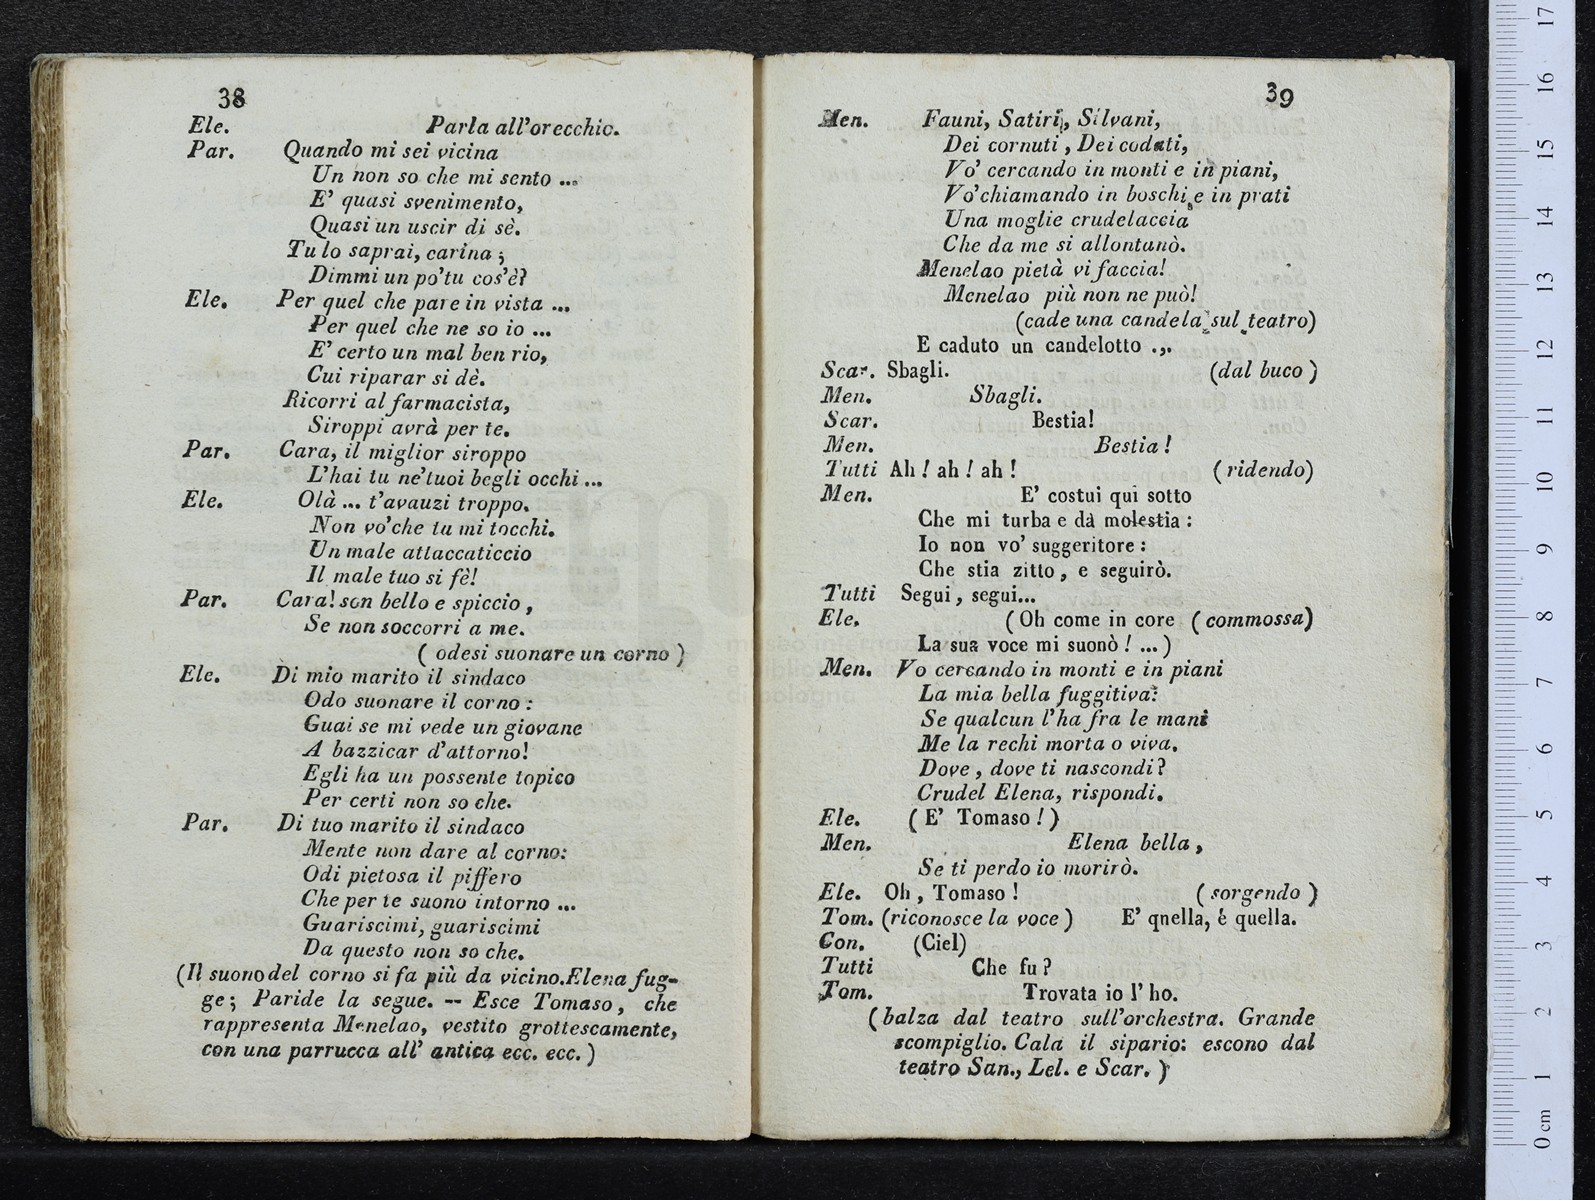 38
Ele. Parla all'orecchio.
Par. Quando mi sei vicina
Un non so che mi sento ...
E' quasi svenimento,
Quasi un uscir di sè.
Tu lo saprai, carina;
Dimmi un po' tu cos'è?
Ele. Per quel che pare in vista ...
Per quel che ne so io ...
E' certo un mal ben rio,
Cui riparar si dè.
Ricorri al farmacista,
Siroppi avrà per te.
Par. Cara, il miglior siroppo
L'hai tu ne'tuoi begli occhi ...
Ele. Olà ... t'avauzi troppo.
Non vo' che tu mi tocchi.
Un male attaccaticcio
Il male tuo si fè!
Par. Cara! son bello e spiccio,
Se non soccorri a me.
( odesi suonare un corno )
Ele. Di mio marito il sindaco
Odo suonare il corno:
Guai se mi vede un giovane
A bazzicar d'attorno!
Egli ha un possente topico
Per certi non so che.
Par. Di tuo marito il sindaco
Mente non dare al corno:
Odi pietosa il piffero
Che per te suono intorno ...
Guariscimi, guariscimi
Da questo non so che.
(Il suono del corno si fa più da vicino. Elena fug-
ge; Paride la segue. -- Esce Tomaso, che
rappresenta Menelao, vestito grottescamente,
con una parrucca all' antica ecc. ecc. )
39
Men. Fauni, Satiri, Silvani,
Dei cornuti, Dei codati,
Vo' cercando in monti e in piani,
Vo' chiamando in boschi e in prati
Una moglie crudelaccia
Che da me si allontanò.
Menelao pietà vi faccia!
Menelao più non ne può!
(cade una candela sul teatro)
E caduto un candelotto ...
Scar. Sbagli. (dal buco )
Men. Sbagli.
Scar. Bestia!
Men. Bestia!
Tutti Ah! ah! ah! ( ridendo)
Men. E' costui qui sotto
Che mi turba e dà molestia:
Io non vo' suggeritore:
Che stia zitto, e seguirò.
Tutti Segui, segui...
Ele. (Oh come in core ( commossa)
La sua voce mi suonò! ...)
Men. Vo cercando in monti e in piani
La mia bella fuggitiva:
Se qualcun l'ha fra le mani
Me la rechi morta o viva.
Dove, dove ti nascondi?
Crudel Elena, rispondi.
Ele. ( E' Tomaso! )
Men. Elena bella,
Se ti perdo io morirò.
Ele. Oh, Tomaso! ( sorgendo )
Tom. (riconosce la voce ) E' qnella, è quella.
Con. (Ciel)
Tutti Che fu?
Tom. Trovata io l' ho.
( balza dal teatro sull'orchestra. Grande
scompiglio. Cala il sipario: escono dal
teatro San., Lel. e Scar. )
17
16
15
14
13
12
11
10
9
8
7
6
5
4
3
2
1
0 cm